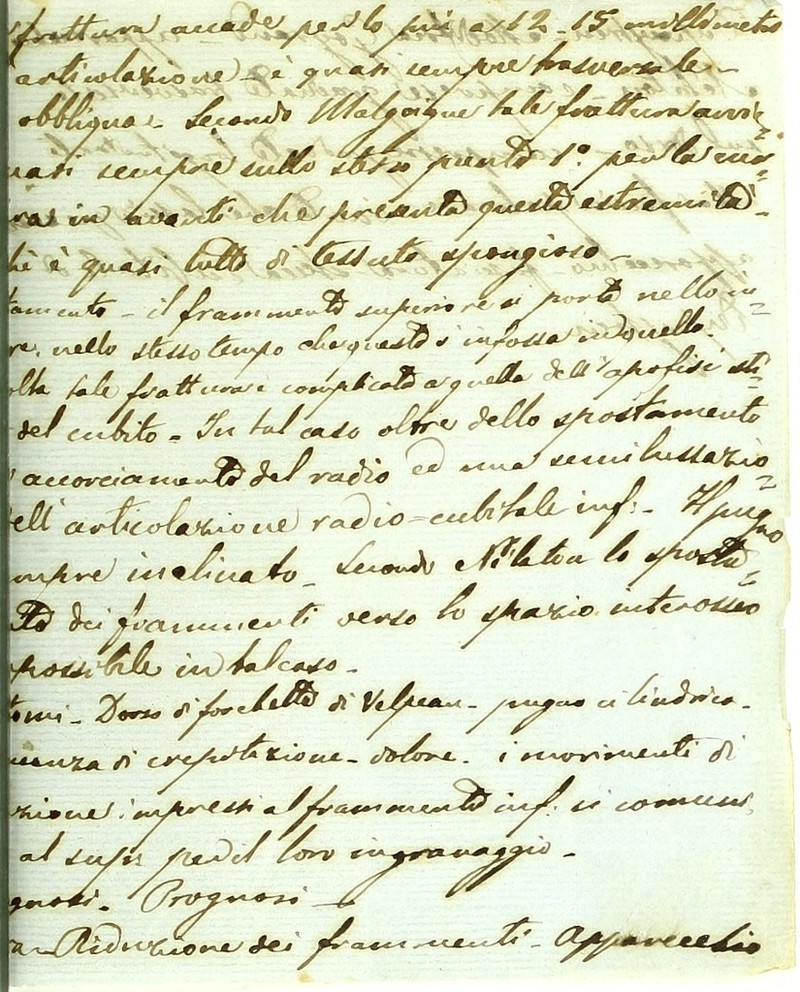 frattura accade per lo più a 12-15 millimetri
articolazione - è quasi sempre trasversale -
obbliqua - Secondo Malgaigne tale frattura avvie=
uasi sempre sullo stesso punto 1.° per la cur=
ra in avanti che presenta questa estremità -
hè è quasi tutto di tessuto spongioso -
tamento - il frammento superiore si porta nello in=
re, nello stesso tempo che questo s'infossa in quello.
olta tale frattura è complicata a quella dell'apofisi sti=
del cubito - In tal caso oltre dello spostamento
accorciamento del radio ed una semilussazio=
ell'articolazione radio=cubitale inf: - Il pugno
mpre inclinato - Secondo Nélaton lo sposta=
to dei frammenti verso lo spazio interosseo
possibile in tal caso -
tomi - Dorso di forchetta di Velpeau - pugno cilindrico -
uenza di crepitazione - dolore - i movimenti di
zione impressi al frammento inf: si comuni
al sup: per il loro ingranaggio -
gnosi - Prognosi -
ra - Riduzione dei frammenti - Apparecchio